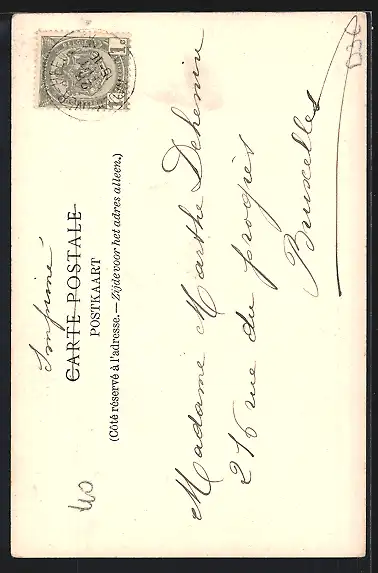 Imprimé
CARTE POSTALE
POSTKAART
(Côté réservé à l'adresse. — Zijde voor het adres alleen.)
Madame Marthe Dehenin
216 rue du progrès
Bruxelles
40
1c